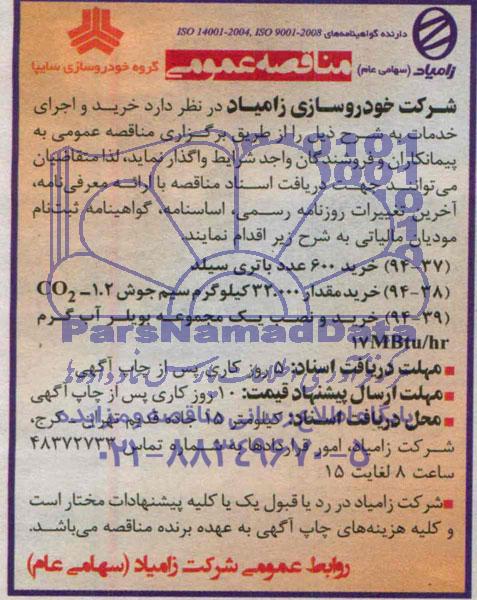 دارنده گواهینامه‌های ISO 14001-2004, ISO 9001-2008
زامیاد (سهامی عام)
مناقصه عمومی
گروه خودروسازی سایپا
شرکت خودروسازی زامیاد در نظر دارد خرید و اجرای
خدمات به شرح ذیل را از طریق برگزاری مناقصه عمومی به
پیمانکاران و فروشندگان واجد شرایط واگذار نماید، لذا متقاضیان
می‌توانند جهت دریافت اسناد مناقصه با ارائه معرفی‌نامه،
آخرین تغییرات روزنامه رسمی، اساسنامه، گواهینامه ثبت‌نام
مودیان مالیاتی به شرح زیر اقدام نمایند.
(۹۴-۳۷) خرید ۶۰۰ عدد باتری سیلد
(۹۴-۳۸) خرید مقدار ۳۲.۰۰۰ کیلوگرم سیم جوش ۱.۲ – CO2
(۹۴-۳۹) خرید و نصب یک مجموعه بویلر آب گرم
۱۷MBtu/hr
ParsNamadData
■ مهلت دریافت اسناد: ۵ روز کاری پس از چاپ آگهی
■ مهلت ارسال پیشنهاد قیمت: ۱۰ روز کاری پس از چاپ آگهی
■ محل دریافت اسناد: کیلومتر ۱۵ جاده قدیم تهران – کرج،
شرکت زامیاد، امور قراردادها به شماره تماس ۴۸۳۷۲۷۳۳
۰۲۱-۸۸۳۴۹۶۷۰-۵
ساعت ۸ لغایت ۱۵
■ شرکت زامیاد در رد یا قبول یک یا کلیه پیشنهادات مختار است
و کلیه هزینه‌های چاپ آگهی به عهده برنده مناقصه می‌باشد.
روابط عمومی شرکت زامیاد (سهامی عام)